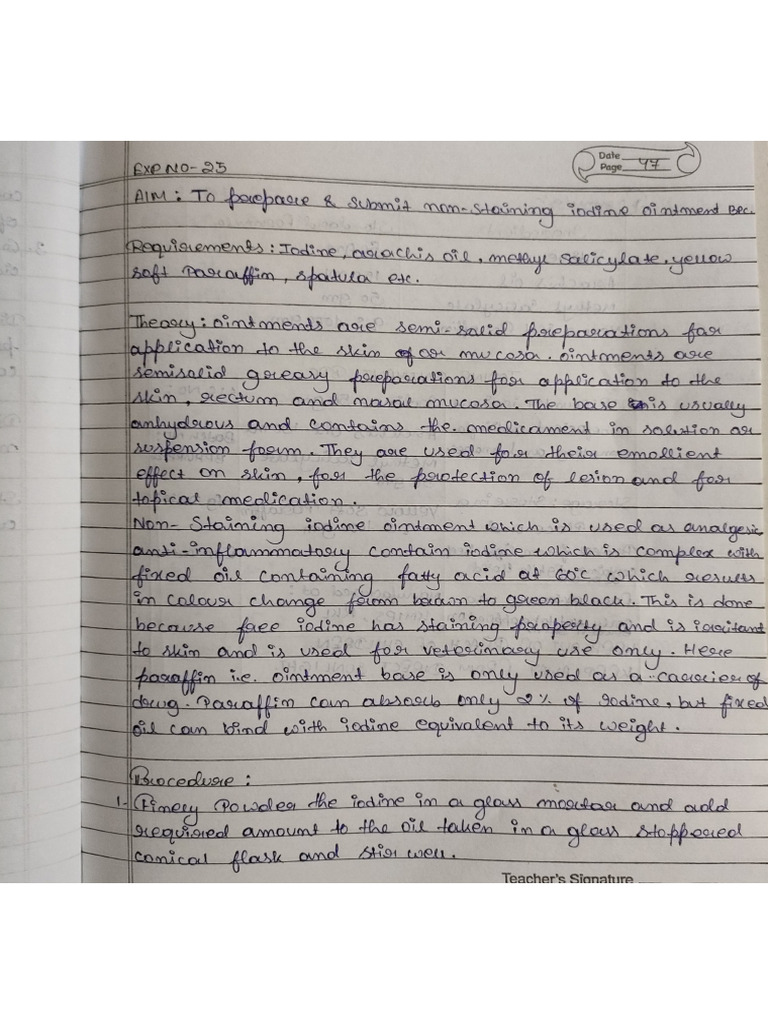 Date
EXP NO- 25
Page 47
AIM : To prepare & submit non-staining iodine ointment BPC.
Requirements : Iodine, arachis oil, methyl salicylate, yellow
soft Paraffin, spatula etc.
Theory : ointments are semi-solid preparations for
application to the skin or mucosa. ointments are
semisolid greasy preparations for application to the
skin, rectum and nasal mucosa. The base is usually
anhydrous and contains the medicament in solution or
suspension form. They are used for their emollient
effect on skin, for the protection of lesion and for
topical medication.
Non- Staining iodine ointment which is used as analgesic,
anti-inflammatory contain iodine which is complex with
fixed oil containing fatty acid at 60°C which results
in colour change from brown to green black. This is done
because free iodine has staining property and is irritant
to skin and is used for veterinary use only. Here
paraffin i.e. ointment base is only used as a carrier of
drug. Paraffin can absorb only 2% of Iodine, but fixed
oil can bind with iodine equivalent to its weight.
Procedure :
1- Finely Powder the iodine in a glass mortar and add
required amount to the oil taken in a glass stoppered
conical flask and stir well.
Teacher's Signature